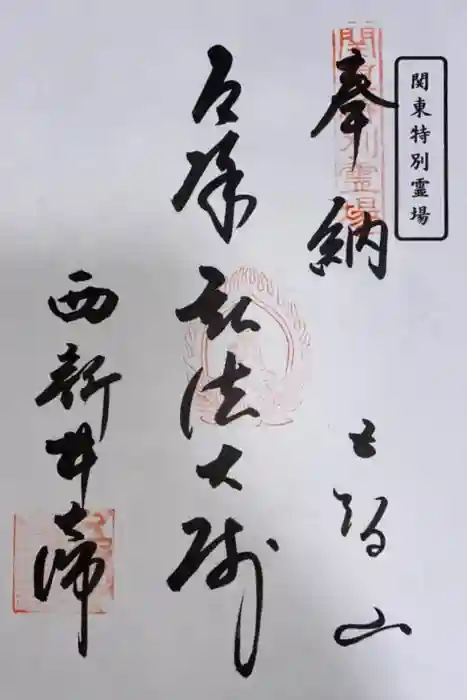 関東特別霊場
関東特別霊場
奉納 五智山
厄除 弘法大師
西新井大師